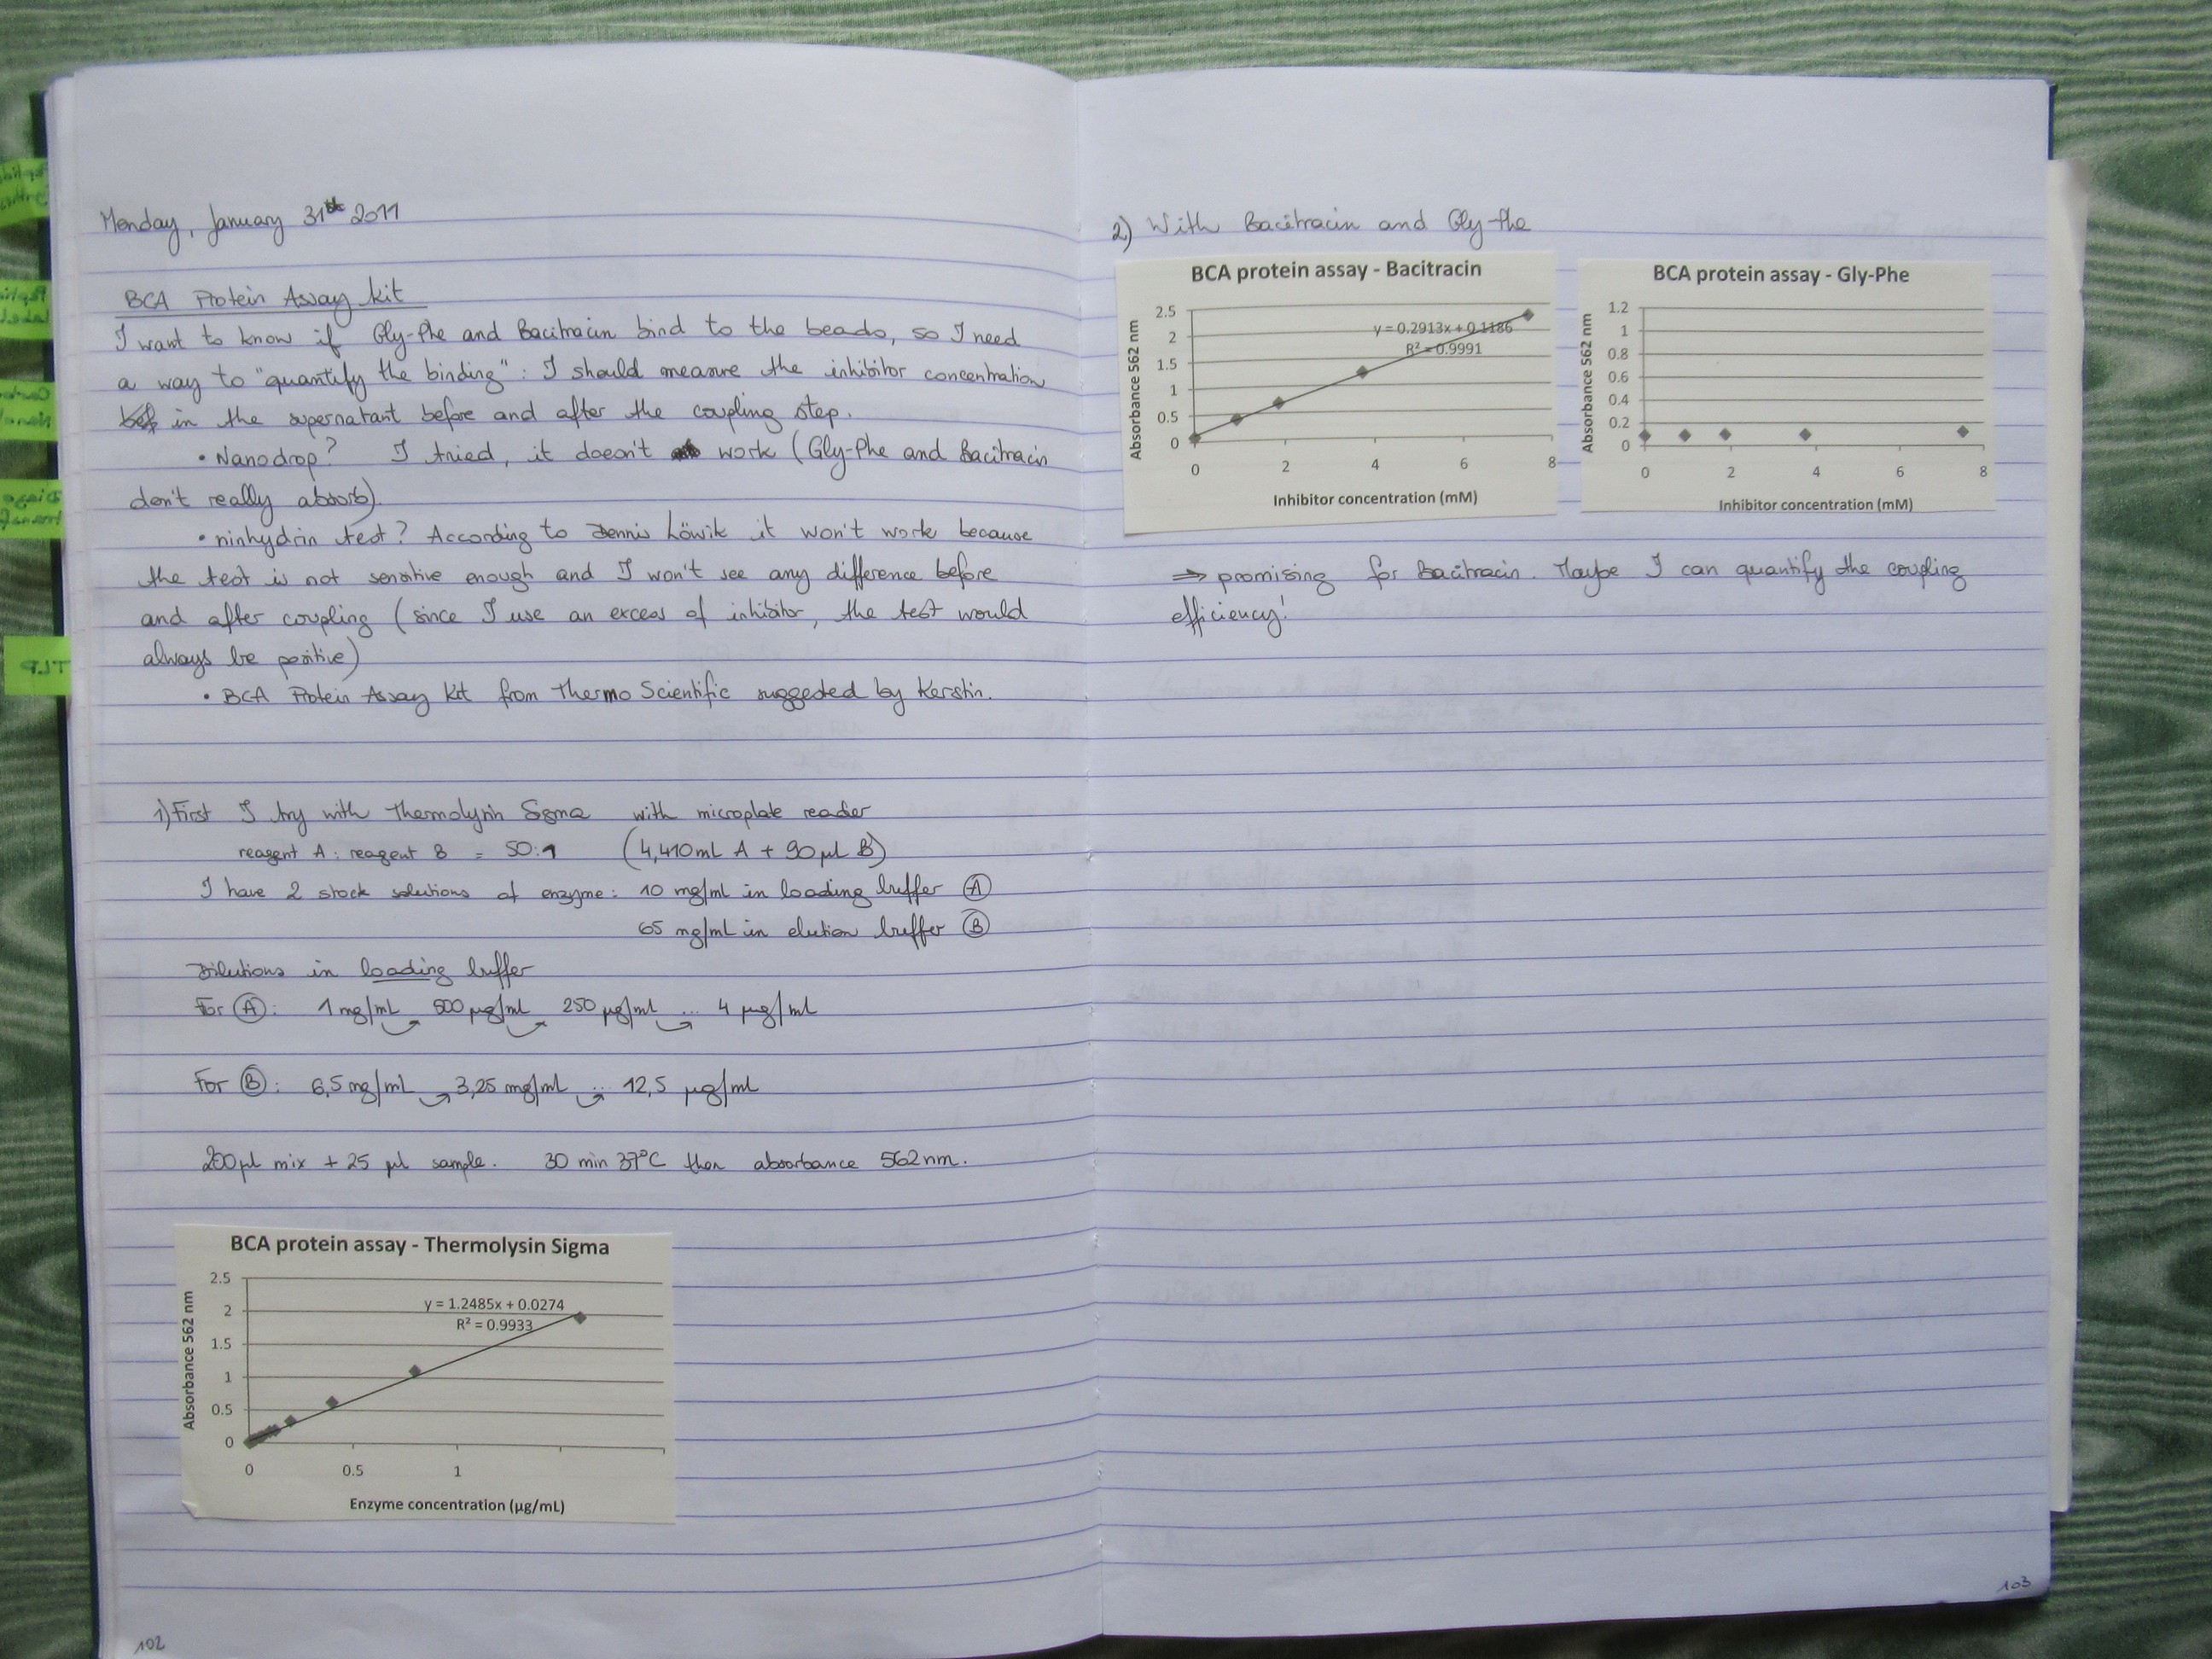 Monday, January 31st 2011
BCA Protein Assay kit
I want to know if Gly-Phe and Bacitracin bind to the beads, so I need
a way to "quantify the binding": I should measure the inhibitor concentration
in the supernatant before and after the coupling step.
• Nanodrop? I tried, it doesn't work (Gly-Phe and Bacitracin
don't really absorb).
• ninhydrin test? According to Dennis Löwik it won't work because
the test is not sensitive enough and I won't see any difference before
and after coupling (since I use an excess of inhibitor, the test would
always be positive)
• BCA Protein Assay Kit from Thermo Scientific suggested by Kerstin.
1) First I try with Thermolysin Sigma with microplate reader
reagent A : reagent B = 50:1 (4,410mL A + 90µL B)
I have 2 stock solutions of enzyme: 10 mg/mL in loading buffer Ⓐ
65 mg/mL in elution buffer Ⓑ
Dilutions in loading buffer
For Ⓐ: 1 mg/mL 500 µg/mL 250 µg/mL ... 4 µg/mL
For Ⓑ: 6,5 mg/mL 3,25 mg/mL ... 12,5 µg/mL
200µL mix + 25 µL sample. 30 min 37°C then absorbance 562nm.
BCA protein assay - Thermolysin Sigma
Absorbance 562 nm
2.5
2
1.5
1
0.5
0
y = 1.2485x + 0.0274
R² = 0.9933
0 0.5 1
Enzyme concentration (µg/mL)
102
2) With Bacitracin and Gly-Phe
BCA protein assay - Bacitracin
Absorbance 562 nm
2.5
2
1.5
1
0.5
0
y = 0.2913x + 0.1186
R² = 0.9991
0 2 4 6 8
Inhibitor concentration (mM)
BCA protein assay - Gly-Phe
Absorbance 562 nm
1.2
1
0.8
0.6
0.4
0.2
0
0 2 4 6 8
Inhibitor concentration (mM)
⇒ promising for Bacitracin. Maybe I can quantify the coupling
efficiency!
103
TLP